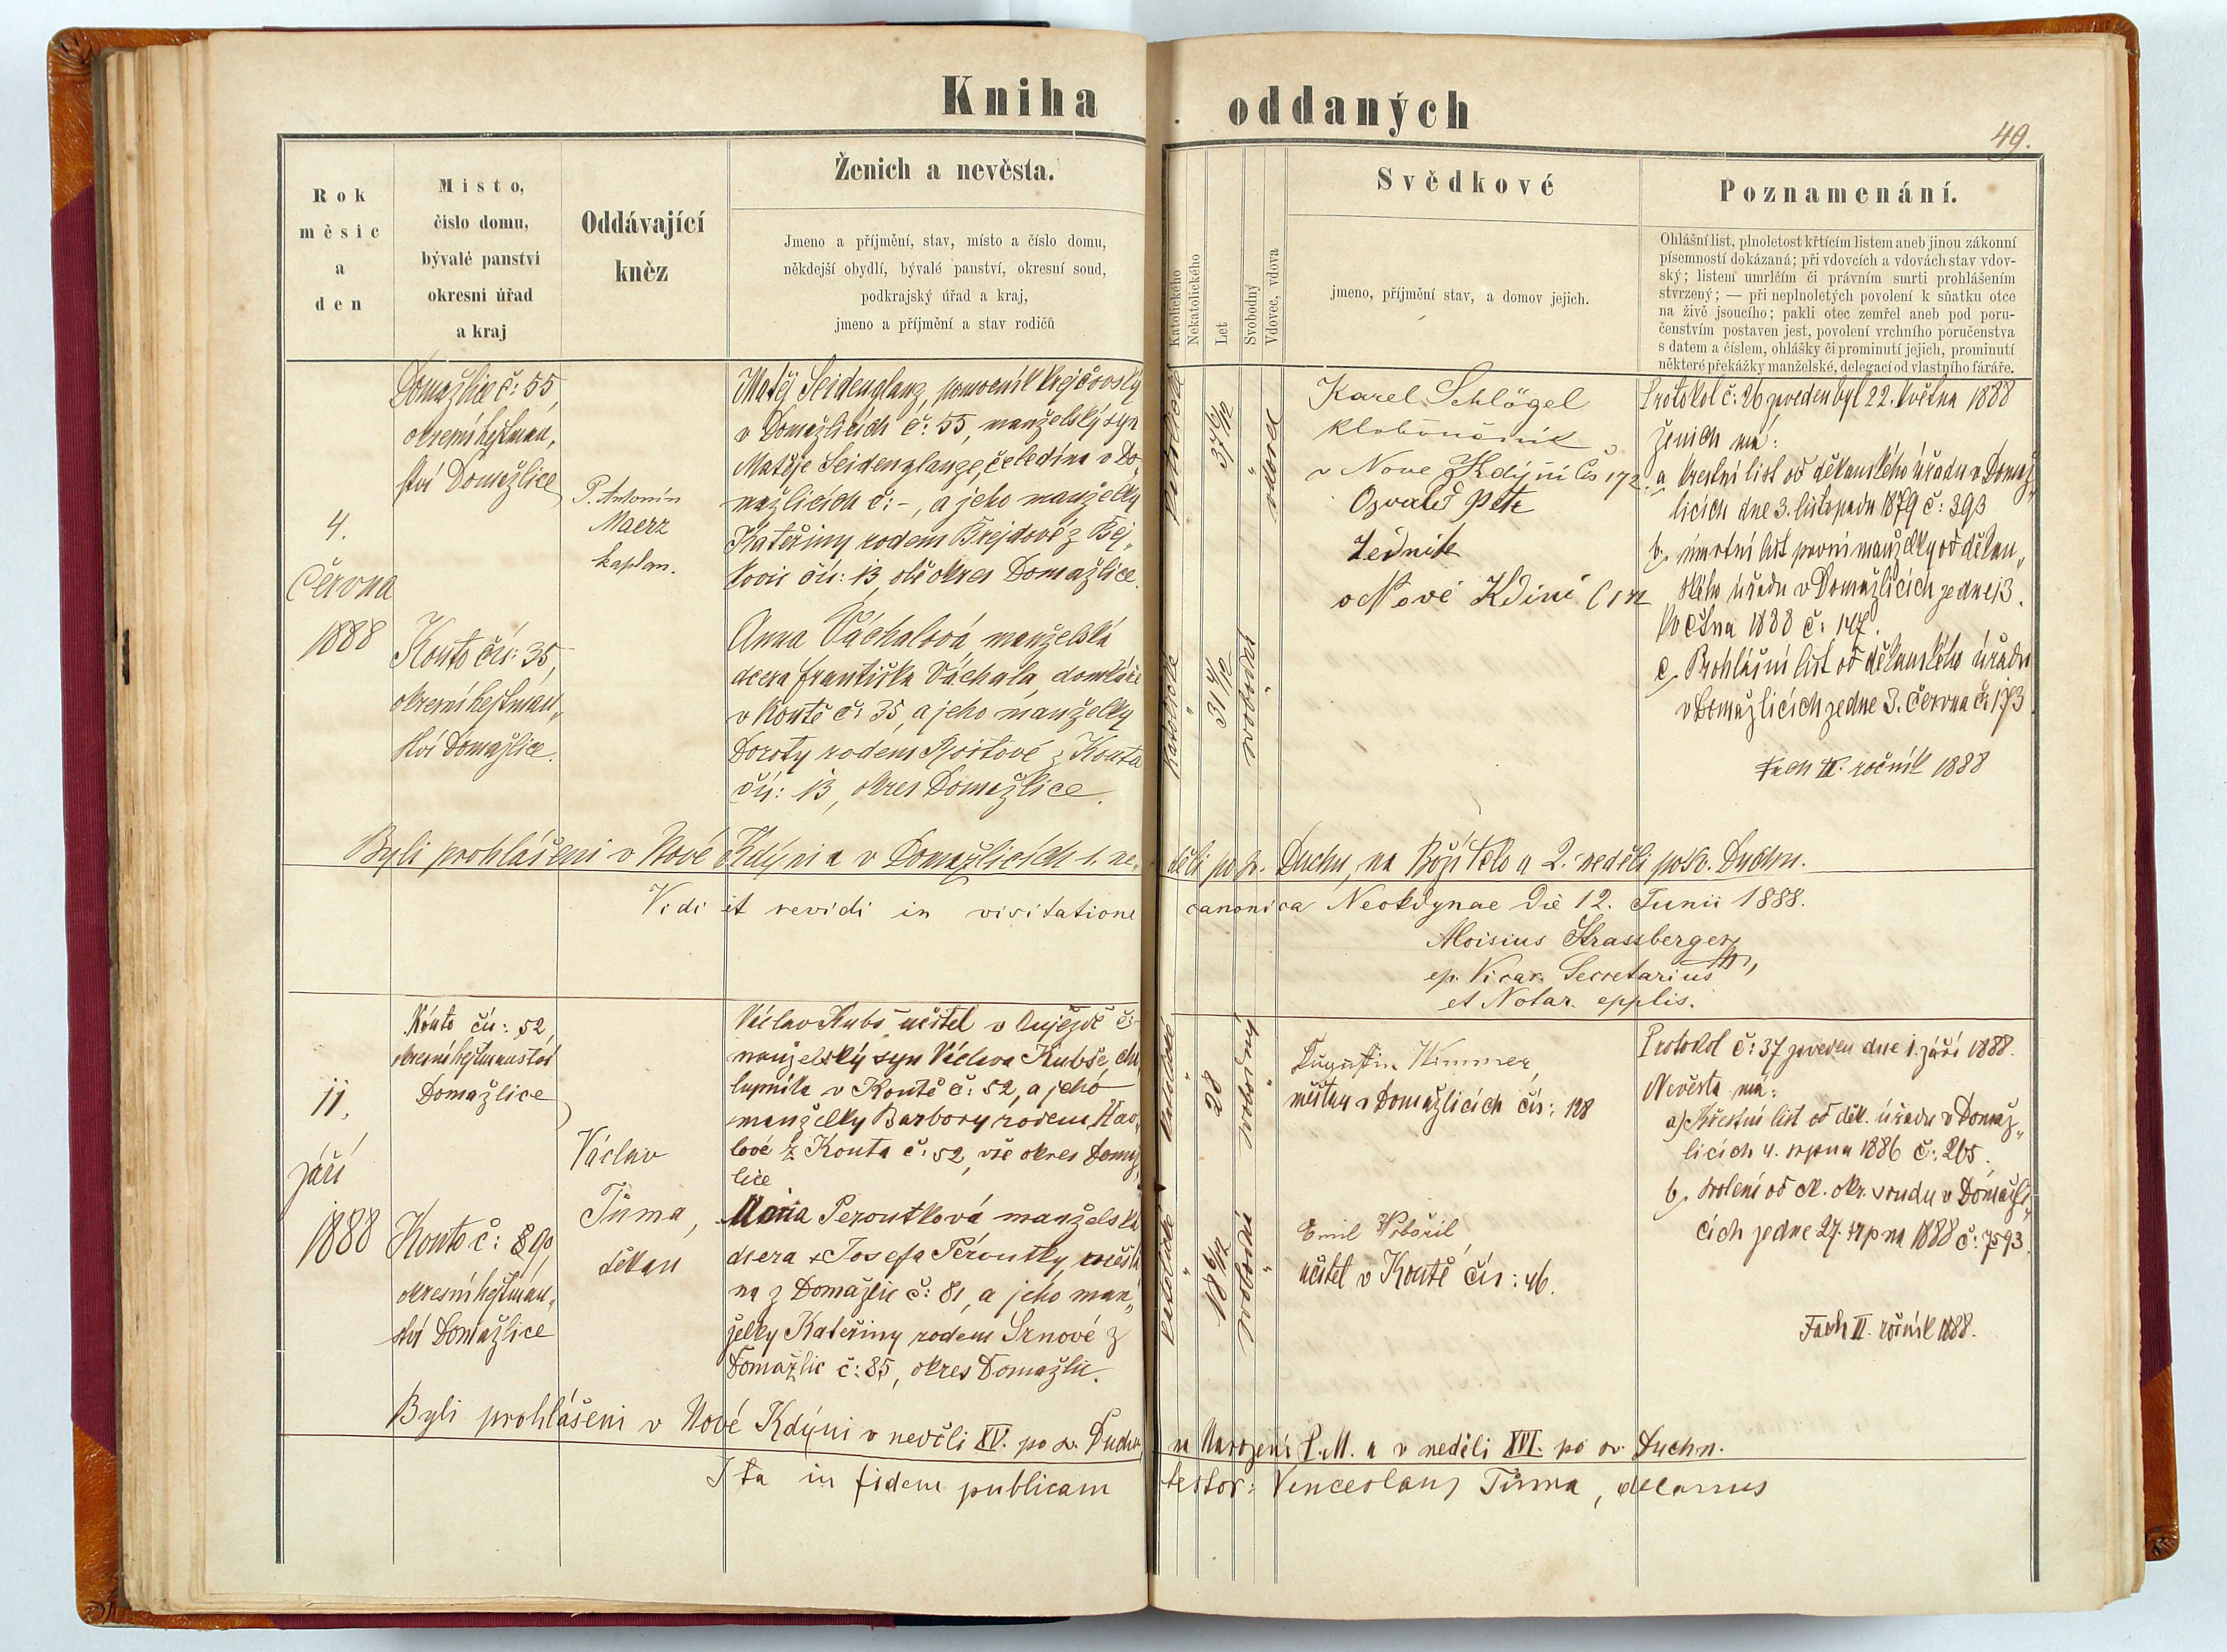 Kniha oddaných
49.
Rok
měsíc
a
den
Místo,
číslo domu,
bývalé panství
okresní úřad
a kraj
Oddávající
kněz
Ženich a nevěsta.
Jmeno a příjmění, stav, místo a číslo domu,
někdejší obydlí, bývalé panství, okresní soud,
podkrajský úřad a kraj,
jmeno a příjmění a stav rodičů
Katolického
Nekatolického
Let
Svobodný
Vdovec, vdova
Svědkové
jmeno, příjmění stav, a domov jejich.
Poznamenání.
Ohlášní list, plnoletost křtícím listem aneb jinou zákonní
písemností dokázaná; při vdovcích a vdovách stav vdov-
ský; listem umrlčím či právním smrti prohlášením
stvrzený; — při neplnoletých povolení k sňatku otce
na živě jsoucího; pakli otec zemřel aneb pod poru-
čenstvím postaven jest, povolení vrchního poručenstva
s datem a číslem, ohlášky či prominutí jejich, prominutí
některé překážky manželské, delegací od vlastního faráře.
4.
června
1888
Domažlice č: 55,
okresní hejtman„
ství Domažlice
Kouto čís: 35,
okresní hejtman„
ství Domažlice.
P. Antonín
Maerz
kaplan.
Matěj Seidenglanz, pomocník krejčovský
v Domažlicích č: 55, manželský syn
Matěje Seidenglanze, čeledína v Do„
mažlicích č: -, a jeho manželky
Kateřiny rodem Brejdové z Bej„
kovic čís: 13, obě okres Domažlice.
Anna Váchalová, manželská
dcera Františka Váchala, domkáře
v Koutě č: 35, a jeho manželky
Doroty rodem z Kouta
čís: 13, okres Domažlice.
katolické
37 6/12
vdovec
katolické
31 4/12
svobodná
Karel Schlögel
kloboučník
v Nove Kdýni čs 172.
Osvald Petr
v Nové Kdini
Protokol č: 26 zveden byl 22. května 1888
Ženich má:
a, křestní list od děkanského úřadu v Domaž„
licích dne 3. listopadu 1879 č: 393
b, úmrtní list první manželky od děkan„
ského úřadu v Domažlicích ze dne 13.
května 1888 č: 147.
c, Prohlášní list od děkanského úřadu
v Domažlicích ze dne 3. června č. 173
Fach II. ročník 1888
Byli prohlášeni v Nové Kdýni a v Domažlicích 1. ne„děli po sv. Duchu, na Boží Tělo a 2. neděli po sv. Duchu.
Vidi et revidi in visitatione canonica Neokdynae Die 12. Junii 1888.
Aloisius Strassberger
ep. Vicar. Secretarius
et Notar. epplis.
11.
září
1888
Kouto čís: 52,
okresní hejtmanství
Domažlice
Kouto č: 90,
okresní hejtman„
ství Domažlice
Václav
Tůma,
děkan
Václav Kubš učitel v Aujezdě č:-
manželský syn Václava Kubše, cha
lupníka v Koutě č: 52, a jeho
manželky Barbory rodem Hav„
lové z Kouta č: 52, vše okres Domaž
lice
Maria Peroutková manželská
dcera + Josefa Peroutky, měšťa
na z Domažlic č: 81, a jeho man„
želky Kateřiny rodem Srnové z
Domažlic č: 85, okres Domažlic.
katolické
28
svobodný
katolické
18 6/12
svobodná
Augustin Kimmer,
měšťan v Domažlicích čís: 128
Emil Pobořil,
učitel v Koutě čís: 46.
Protokol č: 37 zveden dne 1. září 1888.
Nevěsta má:
a) Křestní list od děk. úřadu v Domaž„
licích 4. srpna 1886 č: 265.
b, svolení od ck. okr. soudu v Domažli„
cích ze dne 27. srpna 1888 č: 7593.
Fach II. ročník 1888.
Byli prohlášeni v Nové Kdýni v neděli XV. po sv. Duchu, na Narození P. M. a v neděli XVI. po sv. Duchu.
Ita in fidem publicam testor: Venceslaus Tůma, decanus